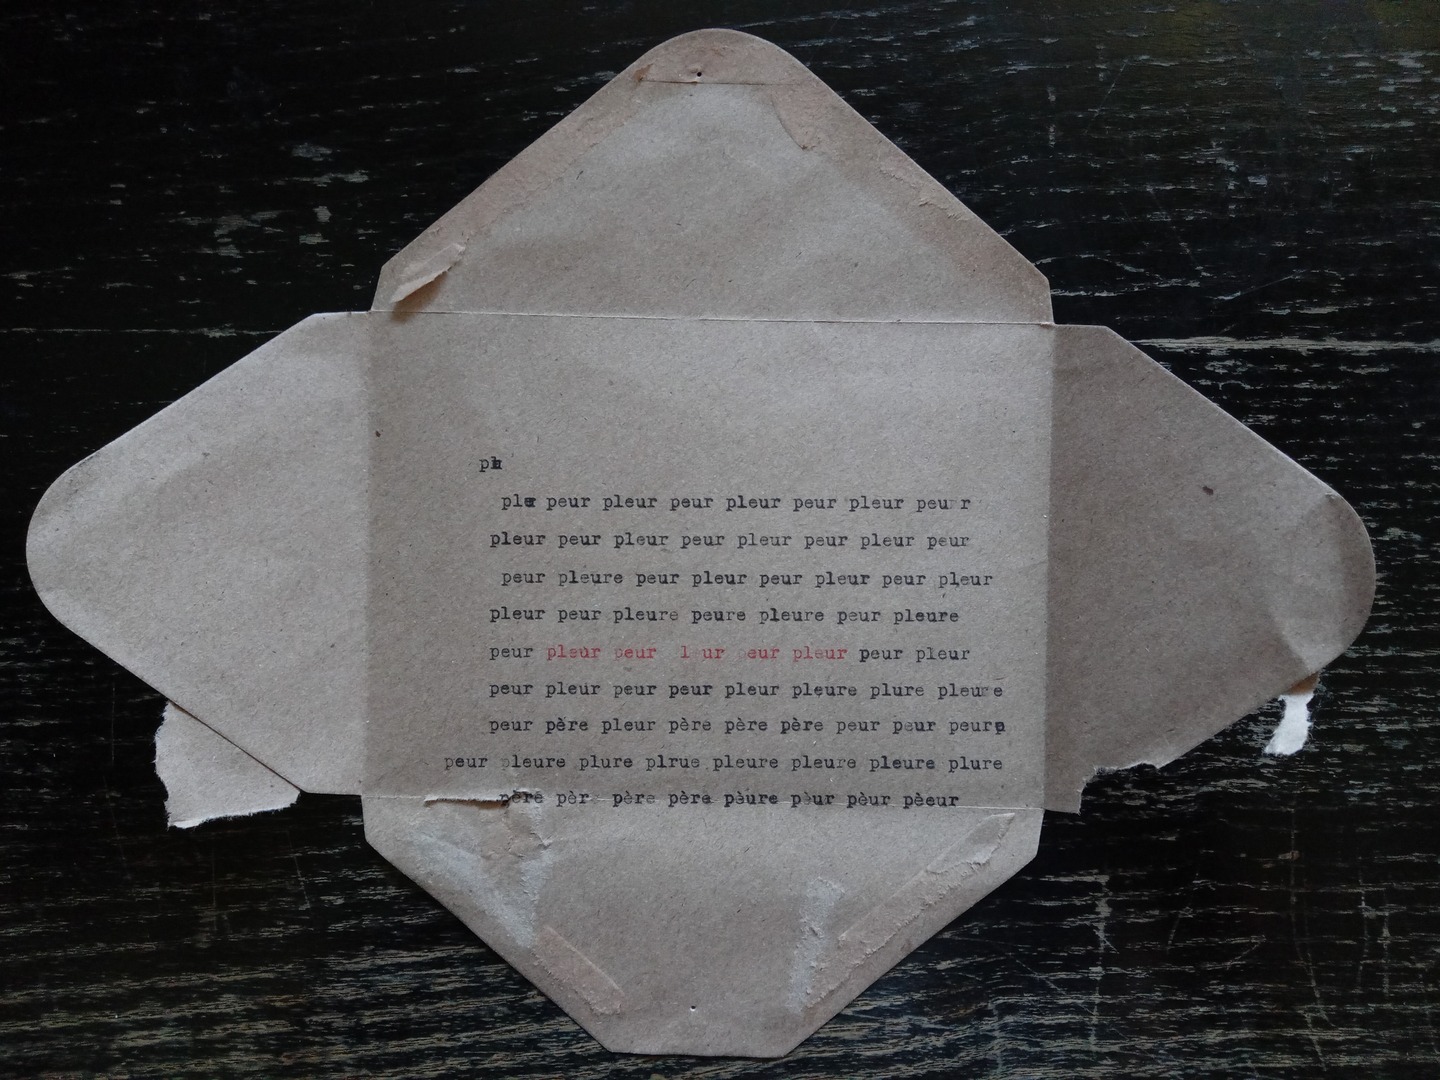 peur pleur peur pleur peur pleur peu r
pleur peur pleur peur pleur peur pleur peur
peur pleure peur pleur peur pleur peur pleur
pleur peur pleure peure pleure peur pleure
peur pleur peur l ur eur pleur peur pleur
peur pleur peur peur pleur pleure plure pleure
peur père pleur père père père peur peur
peur pleure plure plrue pleure pleure pleure plure
père pèr père père pàure pèur pèur pèeur